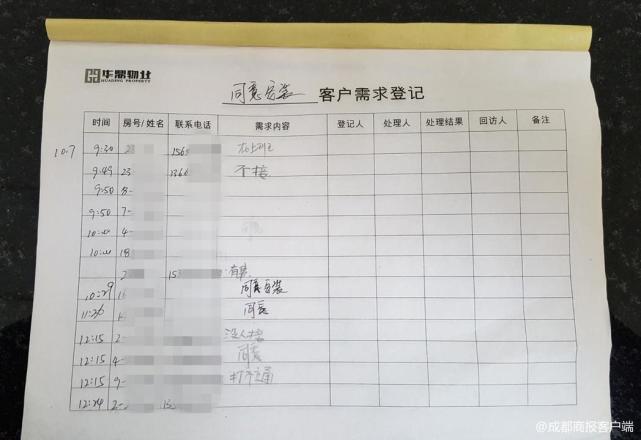 华鼎物业
HUADING PROPERTY
同意安装 客户需求登记
时间 房号/姓名 联系电话 需求内容 登记人 处理人 处理结果 回访人 备注
10.7 9:30 23 156 在上班
9:49 23 136 不接
9:50 8-
9:50 7-
10:00 4-
10:00 18
2 15 有事
10:29 16 同意安装
11:26 同意
12:15 2- 没人接
12:15 4- 同意
12:15 9- 打不通
12:24 2- 15
@成都商报客户端